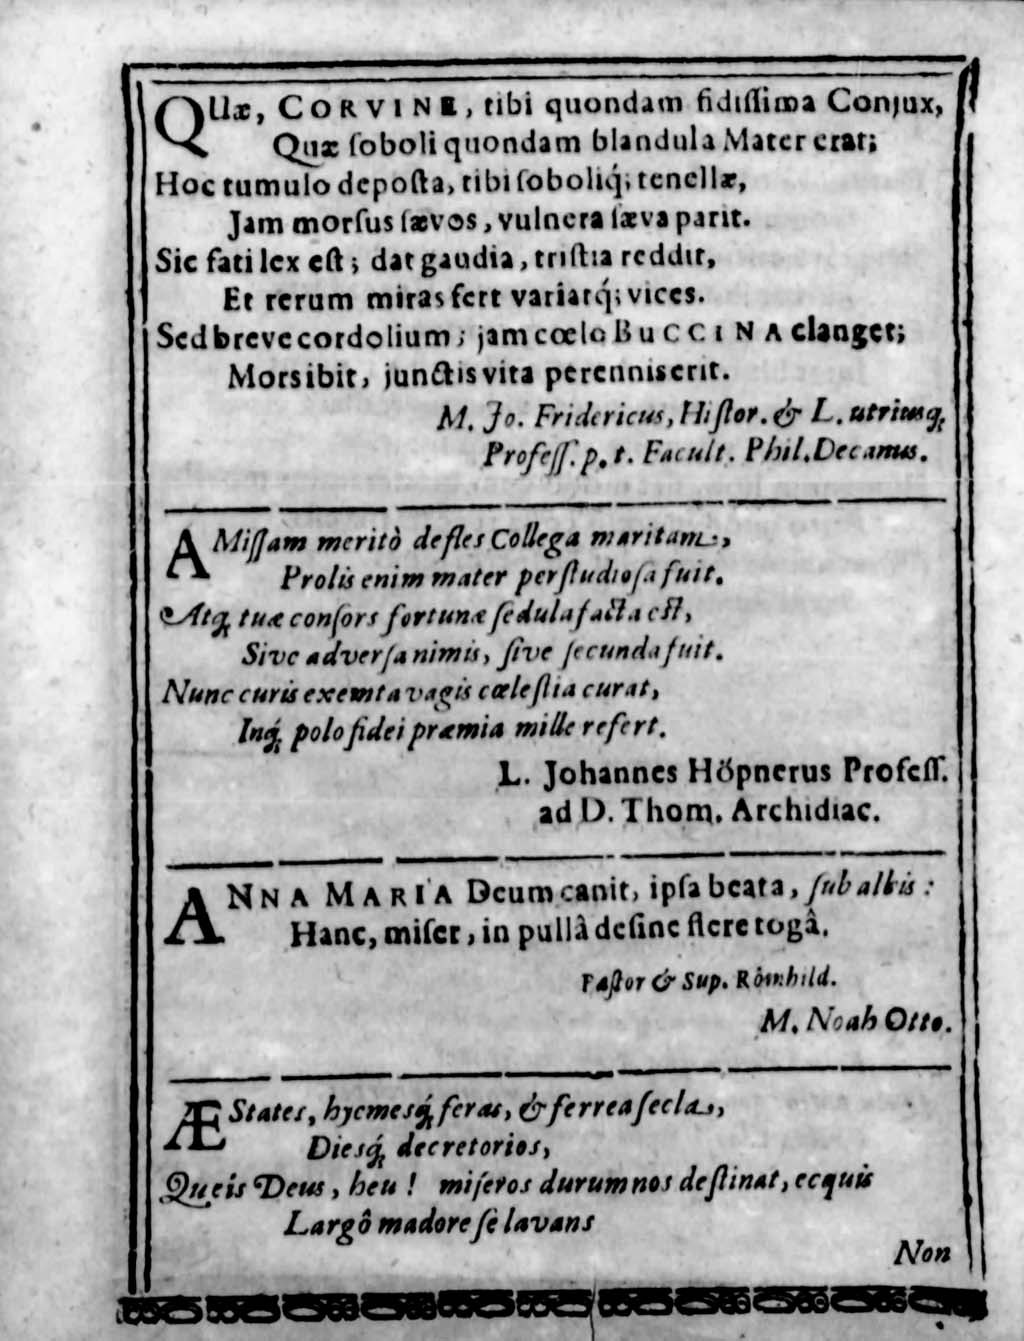 QUæ, CORVINE, tibi quondam fidiſſima Conjux,
Quæ ſoboli quondam blandula Mater erat;
Hoc tumulo depoſta, tibi ſoboliq́; tenellæ,
Jam morſus ſævos, vulnera ſæva parit.
Sic fati lex eſt; dat gaudia, triſtia reddit,
Et rerum miras fert variatq́; vices.
Sed breve cordolium; jam cœlo BUCCINA clanget;
Mors ibit, junctis vita perennis erit.
M. Jo. Fridericus, Hiſtor. & L. utriusq;
Profeſſ. p. t. Facult. Phil. Decanus.
AMiſſam meritò defles Collega maritam,
Prolis enim mater perſtudioſa fuit.
Atq; tuæ conſors fortunæ ſedula facta eſt,
Sive adverſa nimis, ſive ſecunda fuit.
Nunc curis exemta vagis cœleſtia curat,
Inq́; polo fidei præmia mille refert.
L. Johannes Höpnerus Profeſſ.
ad D. Thom. Archidiac.
ANNA MARIA Deum canit, ipſa beata, ſub albis:
Hanc, miſer, in pullâ deſine flere togâ.
Paſtor & Sup. Römhild.
M. Noah Otto.
ÆStates, hyemesq́; feras, & ferrea ſecla,
Diesq́; decretorios,
Queis Deus, heu! miſeros durum nos deſtinat, ecquis
Largô madore ſe lavans
Non